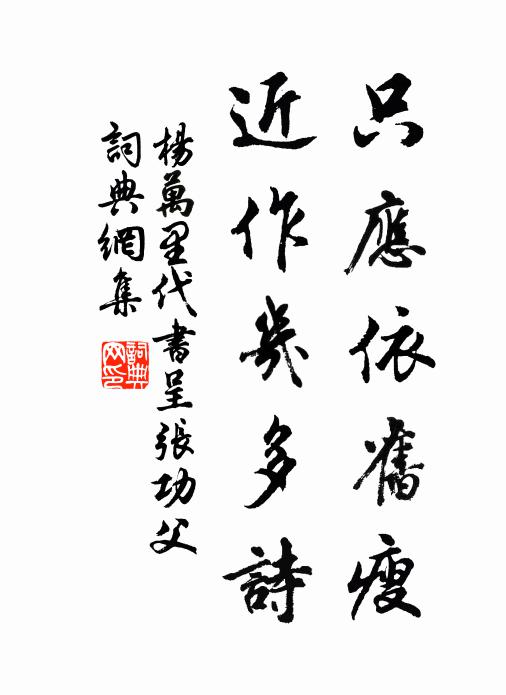 只應依舊瘦
近作幾多詩
楊萬里代書呈張功父
詞典網集
詞典網印